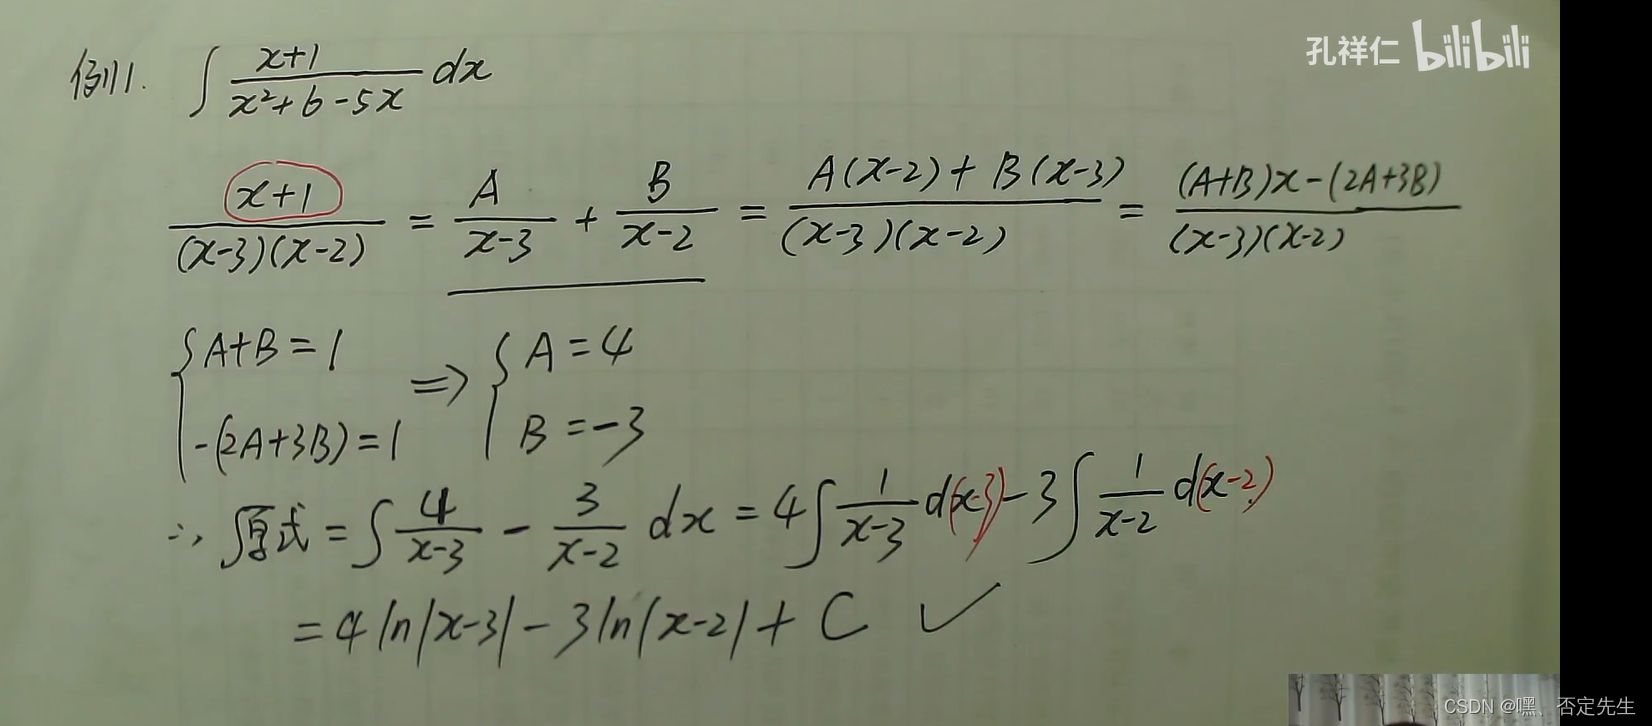 孔祥仁 bilibili
例1. ∫ (x+1)/(x²+6-5x) dx
(x+1)/((x-3)(x-2)) = A/(x-3) + B/(x-2) = (A(x-2)+B(x-3))/((x-3)(x-2)) = ((A+B)x-(2A+3B))/((x-3)(x-2))
{A+B=1 ⇒ {A=4
-(2A+3B)=1 B=-3
∴ 原式 = ∫ 4/(x-3) - 3/(x-2) dx = 4∫ 1/(x-3) d(x-3) - 3∫ 1/(x-2) d(x-2)
= 4ln|x-3| - 3ln|x-2| + C ✓
CSDN @嘿、否定先生